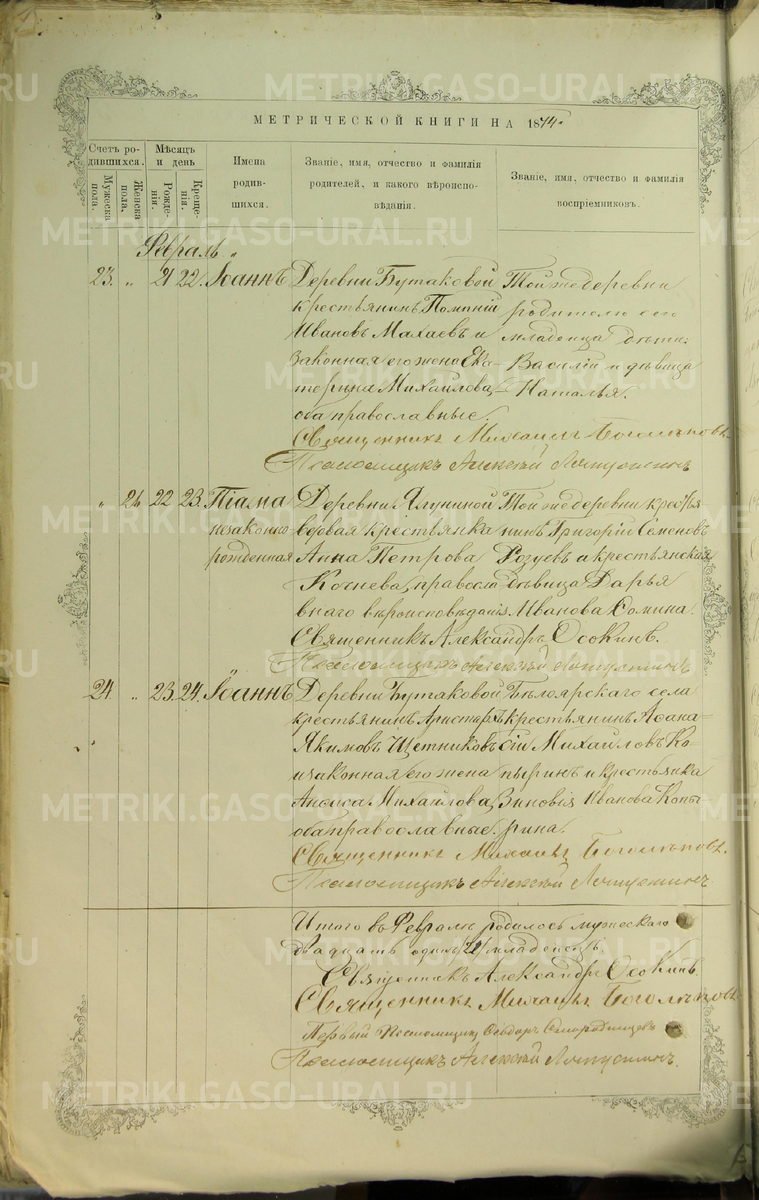 METRIKI.GASO-URAL.RU
МЕТРИЧЕСКОЙ КНИГИ НА 1874.
Счетъ родившихся.
Мѣсяцъ и день
Мужеска пола.
Женска пола.
Рожденія.
Крещенія.
Имена родившихся.
Званіе, имя, отчество и фамилія родителей, и какого вѣроисповѣданія.
Званіе, имя, отчество и фамилія воспріемниковъ.
Февраль „
23. „ 21 22. Іоаннъ
Деревни Бутаковой
крестьянинъ
Ивановъ Махаевъ и
законная его жена Ека-
терина Михайлова,
оба православные.
Той же деревни
родителю его
младенца дѣти:
Василій и дѣвица
Наталья.
Священникъ Михаилъ
Псаломщикъ Алексѣй
„ 26 22 23. Піама
незаконно
рожденная
Деревни Ялуниной
крестьянка
Анна Петрова
Кочнева, правосла-
внаго вѣроисповѣданія.
Той же деревни кресть
нинъ Григорій Семеновъ
и крестьянская
дѣвица Дарья
Иванова Ѳомина.
Священникъ Александръ Осокинъ.
Псаломщикъ Алексѣй
24 „ 23. 24. Іоаннъ
Деревни Бутаковой
крестьянинъ Аристархъ
Якимовъ Щетниковъ
и законная его жена
Анфиса Михайлова,
оба православные.
Бѣлоярскаго села
крестьянинъ Аѳана-
сій Михайловъ Ко-
пыринъ и крестьянка
Зиновія Иванова Копы-
рина.
Священникъ Михаилъ
Псаломщикъ Алексѣй
Итого въ Февралѣ родилось мужескаго
двадцать одинъ /21/ младенецъ.
Священникъ Александръ Осокинъ.
Священникъ Михаилъ
Первый Псаломщикъ Ѳеодоръ
Псаломщикъ Алексѣй